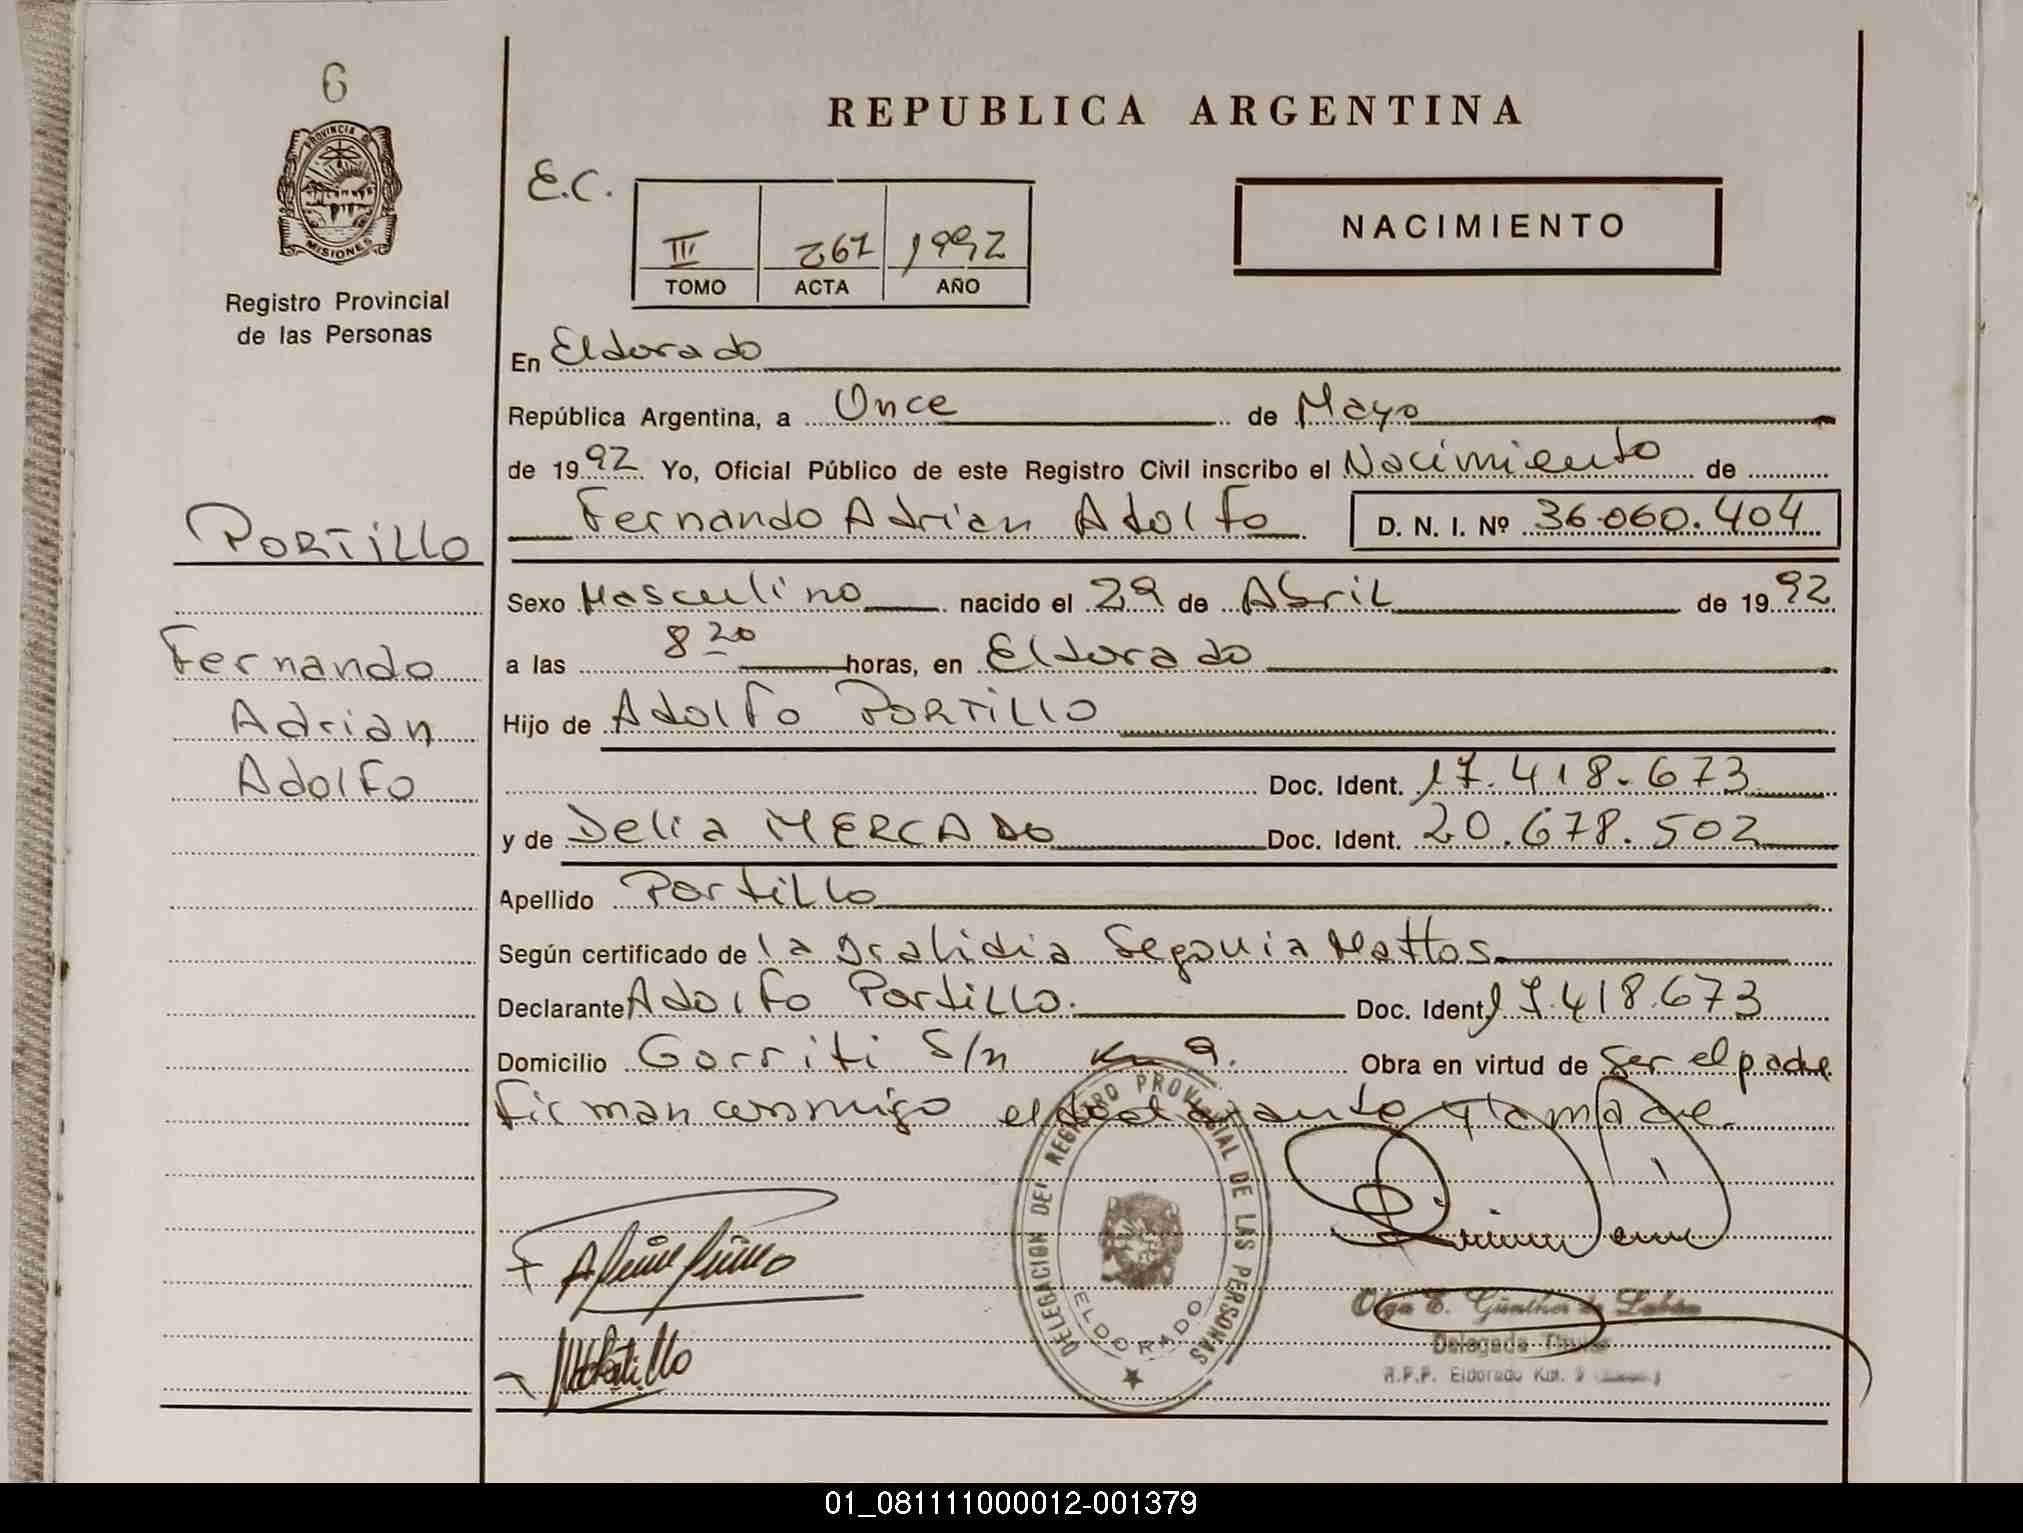 6
PROVINCIA DE
MISIONES
Registro Provincial
de las Personas
PORTILLO
Fernando
Adrian
Adolfo
REPUBLICA ARGENTINA
E.C.
III 261 1992
TOMO ACTA AÑO
NACIMIENTO
En Eldorado
República Argentina, a Once de Mayo
de 1992 Yo, Oficial Público de este Registro Civil inscribo el Nacimiento de
Fernando Adrian Adolfo D. N. I. Nº 36.060.404
Sexo Masculino nacido el 29 de Abril de 1992
a las 8 20 horas, en Eldorado
Hijo de Adolfo PORTILLO
Doc. Ident. 17.418.673
y de Delia MERCADO Doc. Ident. 20.678.502
Apellido Portillo
Según certificado de la Dra Lidia Segovia Mattos
Declarante Adolfo Portillo. Doc. Ident 17.418.673
Domicilio Gorriti S/n Km 9. Obra en virtud de Ser el padre
firman conmigo el declarante y la madre.
DELEGACION DEL REGISTRO PROVINCIAL DE LAS PERSONAS
ELDORADO
Olga E. Günther de
Delegada Titular
R.P.P. Eldorado Km. 9
01_081111000012-001379